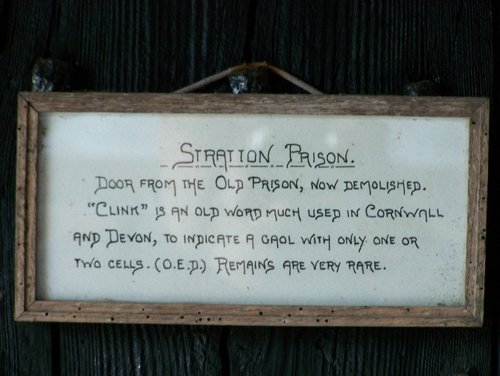 Stratton Prison.
Door from the Old Prison, now demolished.
"Clink" is an old word much used in Cornwall
and Devon, to indicate a gaol with only one or
two cells. (O.E.D.) Remains are very rare.